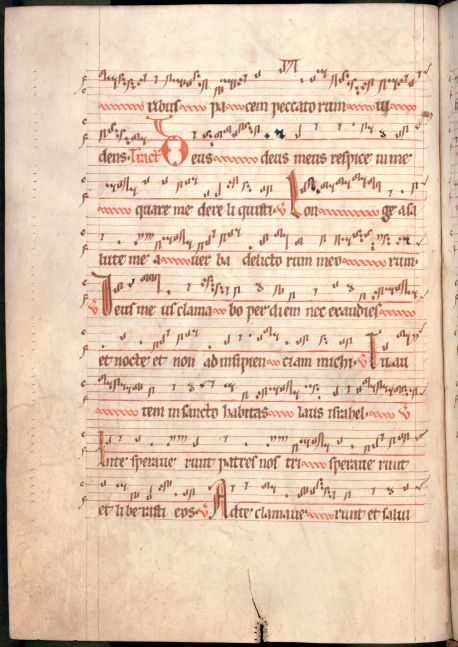 ribus pa cem peccato rum ui
dens. Tract Deus deus meus respice in me
quare me dere li quisti. V Lon ge a sa
lute me a uer ba delicto rum meo rum.
V Deus me us clama bo per diem nec exaudies
et nocte et non ad insipien ciam michi. V Tu au
tem in sancto habitas laus israhel. V
In te speraue runt patres nos tri speraue runt
et li be rasti eos. V Ad te clamaue runt et salui